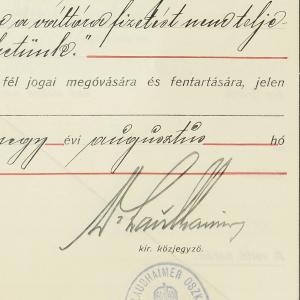 a a váltóra fizetést nem telje-
hetünk."
fél jogai megóvására és fentartására, jelen
négy évi augusztus hó
Dr Laubhaimer
kir. közjegyző.
LAUBHAIMER OSZK